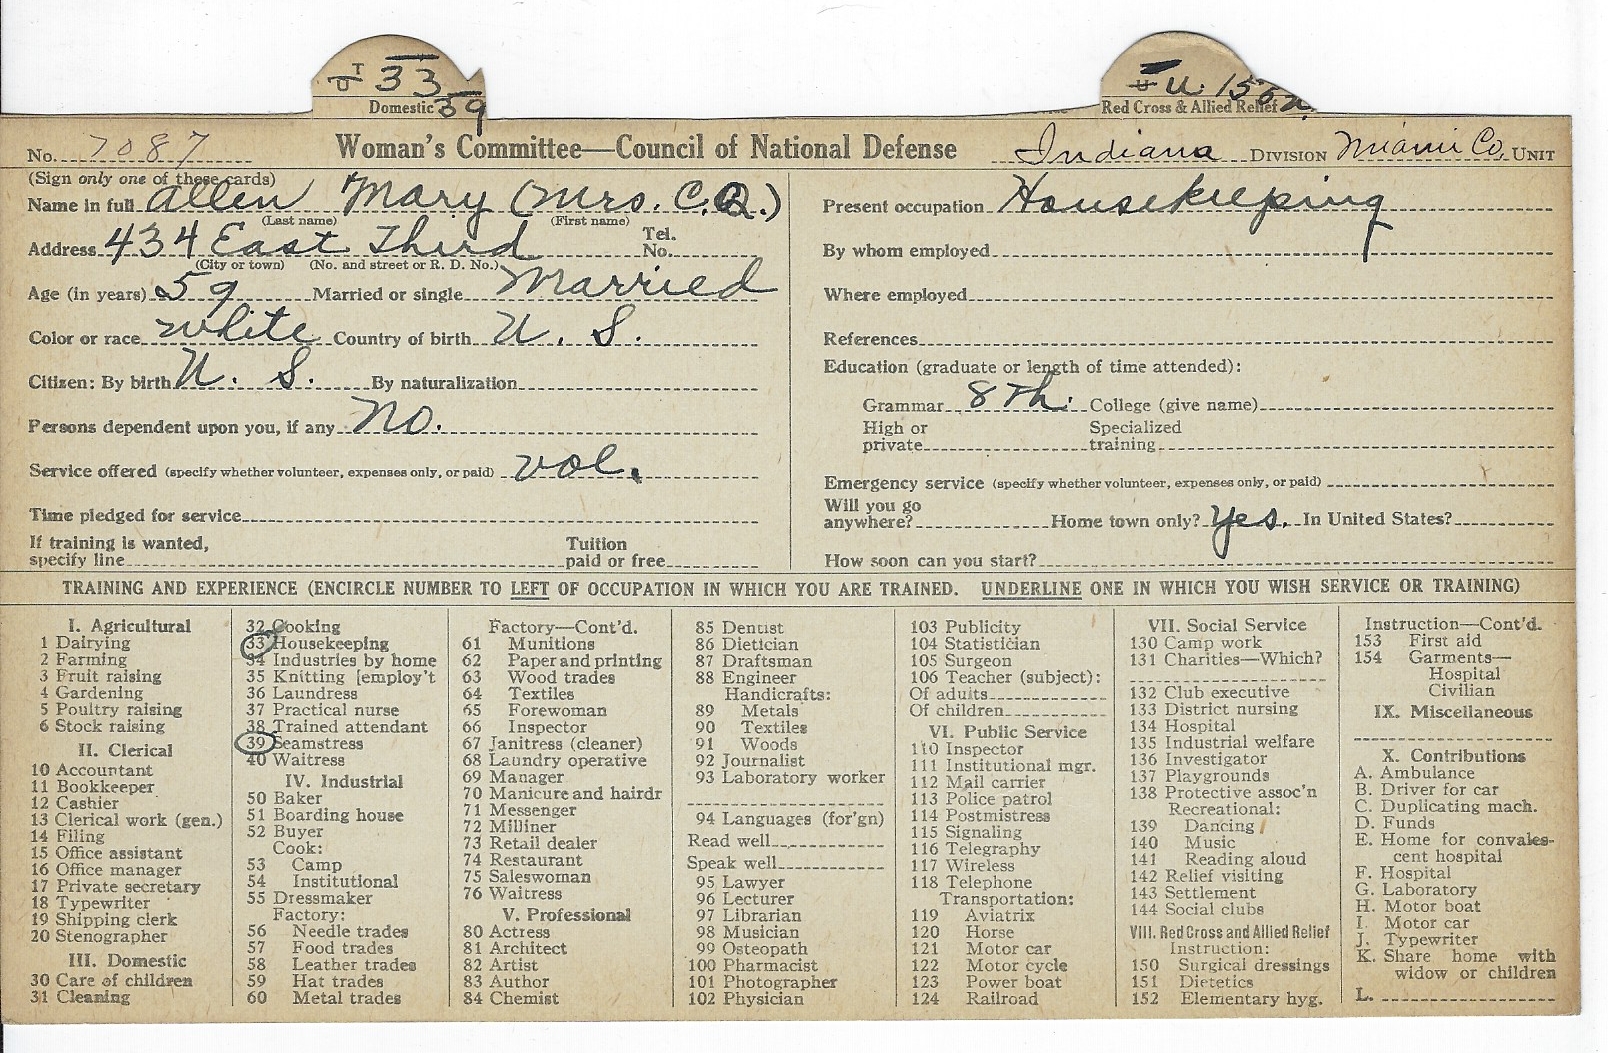 T
U 33
Domestic 39
U U. 155a
Red Cross & Allied Relief
No. 7087 Woman's Committee—Council of National Defense Indiana DIVISION Miami Co. UNIT
(Sign only one of these cards)
Name in full Allen Mary (Mrs. C.Q.)
(Last name) (First name)
Address 434 East Third Tel. No.
(City or town) (No. and street or R. D. No.)
Age (in years) 59 Married or single Married
Color or race White Country of birth U. S.
Citizen: By birth U. S. By naturalization
Persons dependent upon you, if any No.
Service offered (specify whether volunteer, expenses only, or paid) vol.
Time pledged for service
If training is wanted, Tuition
specify line paid or free
Present occupation Housekeeping
By whom employed
Where employed
References
Education (graduate or length of time attended):
Grammar 8th. College (give name)
High or Specialized
private training
Emergency service (specify whether volunteer, expenses only, or paid)
Will you go
anywhere? Home town only? Yes. In United States?
How soon can you start?
TRAINING AND EXPERIENCE (ENCIRCLE NUMBER TO LEFT OF OCCUPATION IN WHICH YOU ARE TRAINED. UNDERLINE ONE IN WHICH YOU WISH SERVICE OR TRAINING)
I. Agricultural
1 Dairying
2 Farming
3 Fruit raising
4 Gardening
5 Poultry raising
6 Stock raising
II. Clerical
10 Accountant
11 Bookkeeper
12 Cashier
13 Clerical work (gen.)
14 Filing
15 Office assistant
16 Office manager
17 Private secretary
18 Typewriter
19 Shipping clerk
20 Stenographer
III. Domestic
30 Care of children
31 Cleaning
32 Cooking
33 Housekeeping
34 Industries by home
35 Knitting [employ't
36 Laundress
37 Practical nurse
38 Trained attendant
39 Seamstress
40 Waitress
IV. Industrial
50 Baker
51 Boarding house
52 Buyer
Cook:
53 Camp
54 Institutional
55 Dressmaker
Factory:
56 Needle trades
57 Food trades
58 Leather trades
59 Hat trades
60 Metal trades
Factory—Cont'd.
61 Munitions
62 Paper and printing
63 Wood trades
64 Textiles
65 Forewoman
66 Inspector
67 Janitress (cleaner)
68 Laundry operative
69 Manager
70 Manicure and hairdr
71 Messenger
72 Milliner
73 Retail dealer
74 Restaurant
75 Saleswoman
76 Waitress
V. Professional
80 Actress
81 Architect
82 Artist
83 Author
84 Chemist
85 Dentist
86 Dietician
87 Draftsman
88 Engineer
Handicrafts:
89 Metals
90 Textiles
91 Woods
92 Journalist
93 Laboratory worker
94 Languages (for'gn)
Read well
Speak well
95 Lawyer
96 Lecturer
97 Librarian
98 Musician
99 Osteopath
100 Pharmacist
101 Photographer
102 Physician
103 Publicity
104 Statistician
105 Surgeon
106 Teacher (subject):
Of adults
Of children
VI. Public Service
110 Inspector
111 Institutional mgr.
112 Mail carrier
113 Police patrol
114 Postmistress
115 Signaling
116 Telegraphy
117 Wireless
118 Telephone
Transportation:
119 Aviatrix
120 Horse
121 Motor car
122 Motor cycle
123 Power boat
124 Railroad
VII. Social Service
130 Camp work
131 Charities—Which?
132 Club executive
133 District nursing
134 Hospital
135 Industrial welfare
136 Investigator
137 Playgrounds
138 Protective assoc'n
Recreational:
139 Dancing
140 Music
141 Reading aloud
142 Relief visiting
143 Settlement
144 Social clubs
VIII. Red Cross and Allied Relief
Instruction:
150 Surgical dressings
151 Dietetics
152 Elementary hyg.
Instruction—Cont'd.
153 First aid
154 Garments—
Hospital
Civilian
IX. Miscellaneous
X. Contributions
A. Ambulance
B. Driver for car
C. Duplicating mach.
D. Funds
E. Home for convales-
cent hospital
F. Hospital
G. Laboratory
H. Motor boat
I. Motor car
J. Typewriter
K. Share home with
widow or children
L.